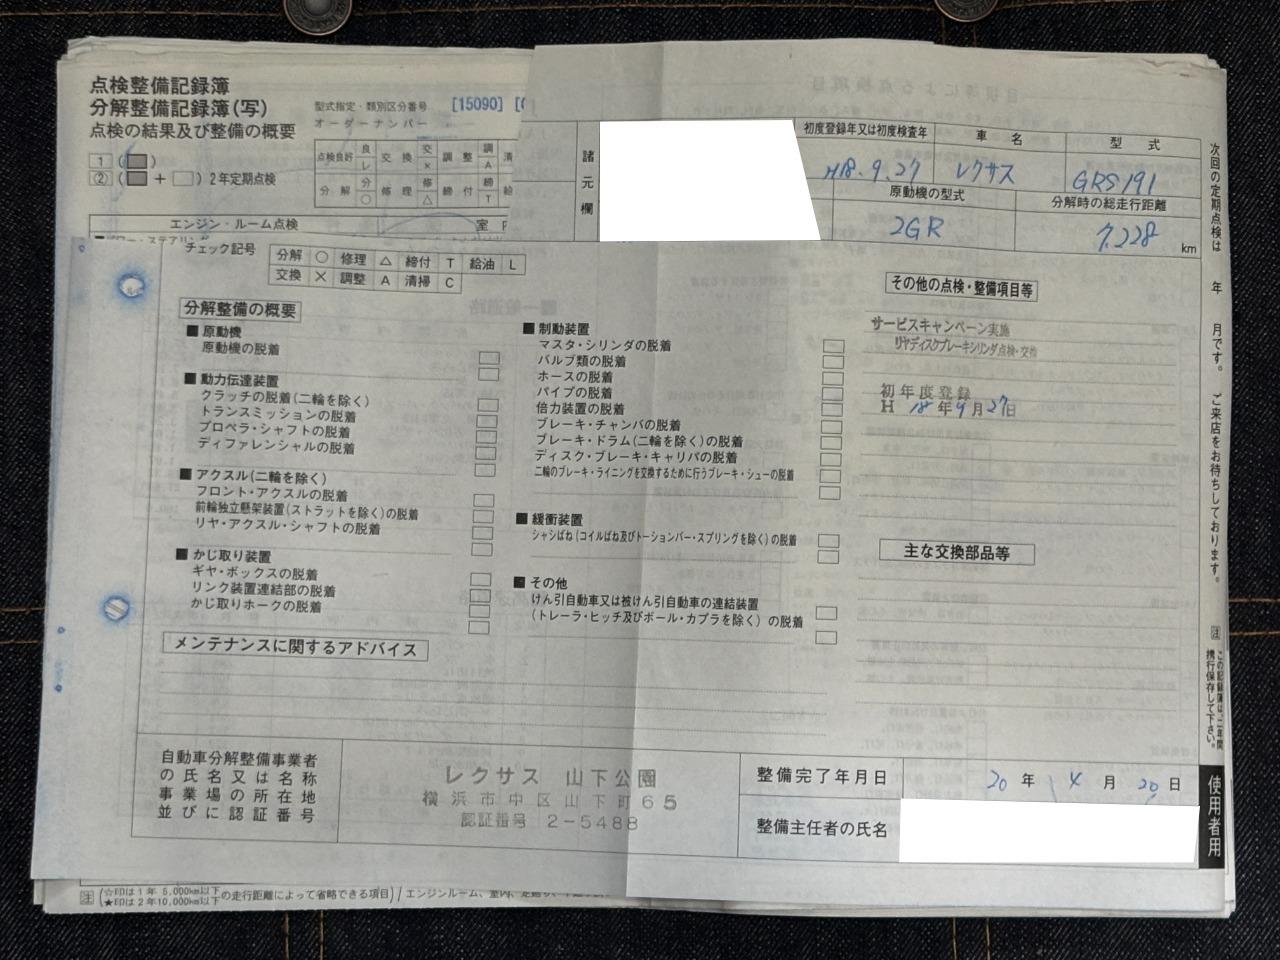 点検整備記録簿
分解整備記録簿(写)
点検の結果及び整備の概要
型式指定・類別区分番号 [15090]
オーダーナンバー
1
② + 2年定期点検
点検良好 良 レ 交換 交 × 調整 調 A 清
分解 分 ○ 修理 修 △ 締付 締 T 給
エンジン・ルーム点検
室
諸元欄
初度登録年又は初度検査年 車名 型式
H18.9.27 レクサス GRS191
原動機の型式 分解時の総走行距離
2GR 7,228 km
チェック記号
分解 ○ 修理 △ 締付 T 給油 L
交換 × 調整 A 清掃 C
分解整備の概要
■ 原動機
原動機の脱着
■ 動力伝達装置
クラッチの脱着(二輪を除く)
トランスミッションの脱着
プロペラ・シャフトの脱着
ディファレンシャルの脱着
■ アクスル(二輪を除く)
フロント・アクスルの脱着
前輪独立懸架装置(ストラットを除く)の脱着
リヤ・アクスル・シャフトの脱着
■ かじ取り装置
ギヤ・ボックスの脱着
リンク装置連結部の脱着
かじ取りホークの脱着
■ 制動装置
マスタ・シリンダの脱着
バルブ類の脱着
ホースの脱着
パイプの脱着
倍力装置の脱着
ブレーキ・チャンバの脱着
ブレーキ・ドラム(二輪を除く)の脱着
ディスク・ブレーキ・キャリパの脱着
二輪のブレーキ・ライニングを交換するために行うブレーキ・シューの脱着
■ 緩衝装置
シャシばね(コイルばね及びトーションバー・スプリングを除く)の脱着
■ その他
けん引自動車又は被けん引自動車の連結装置
(トレーラ・ヒッチ及びボール・カプラを除く)の脱着
その他の点検・整備項目等
サービスキャンペーン実施
リヤディスクブレーキシリンダ点検・交換
初年度登録
H 18年9月27日
主な交換部品等
メンテナンスに関するアドバイス
自動車分解整備事業者
の氏名又は名称
事業場の所在地
並びに認証番号
レクサス 山下公園
横浜市中区山下町65
認証番号 2-5488
整備完了年月日 20年 4月 20日
整備主任者の氏名
次回の定期点検は 年 月です。ご来店をお待ちしております。
注 この記録簿は二年間
携行保存して下さい。
使用者用
注 (☆印は1年 5,000km以下
★印は2年10,000km以下 の走行距離によって省略できる項目) / エンジンルーム、室内、